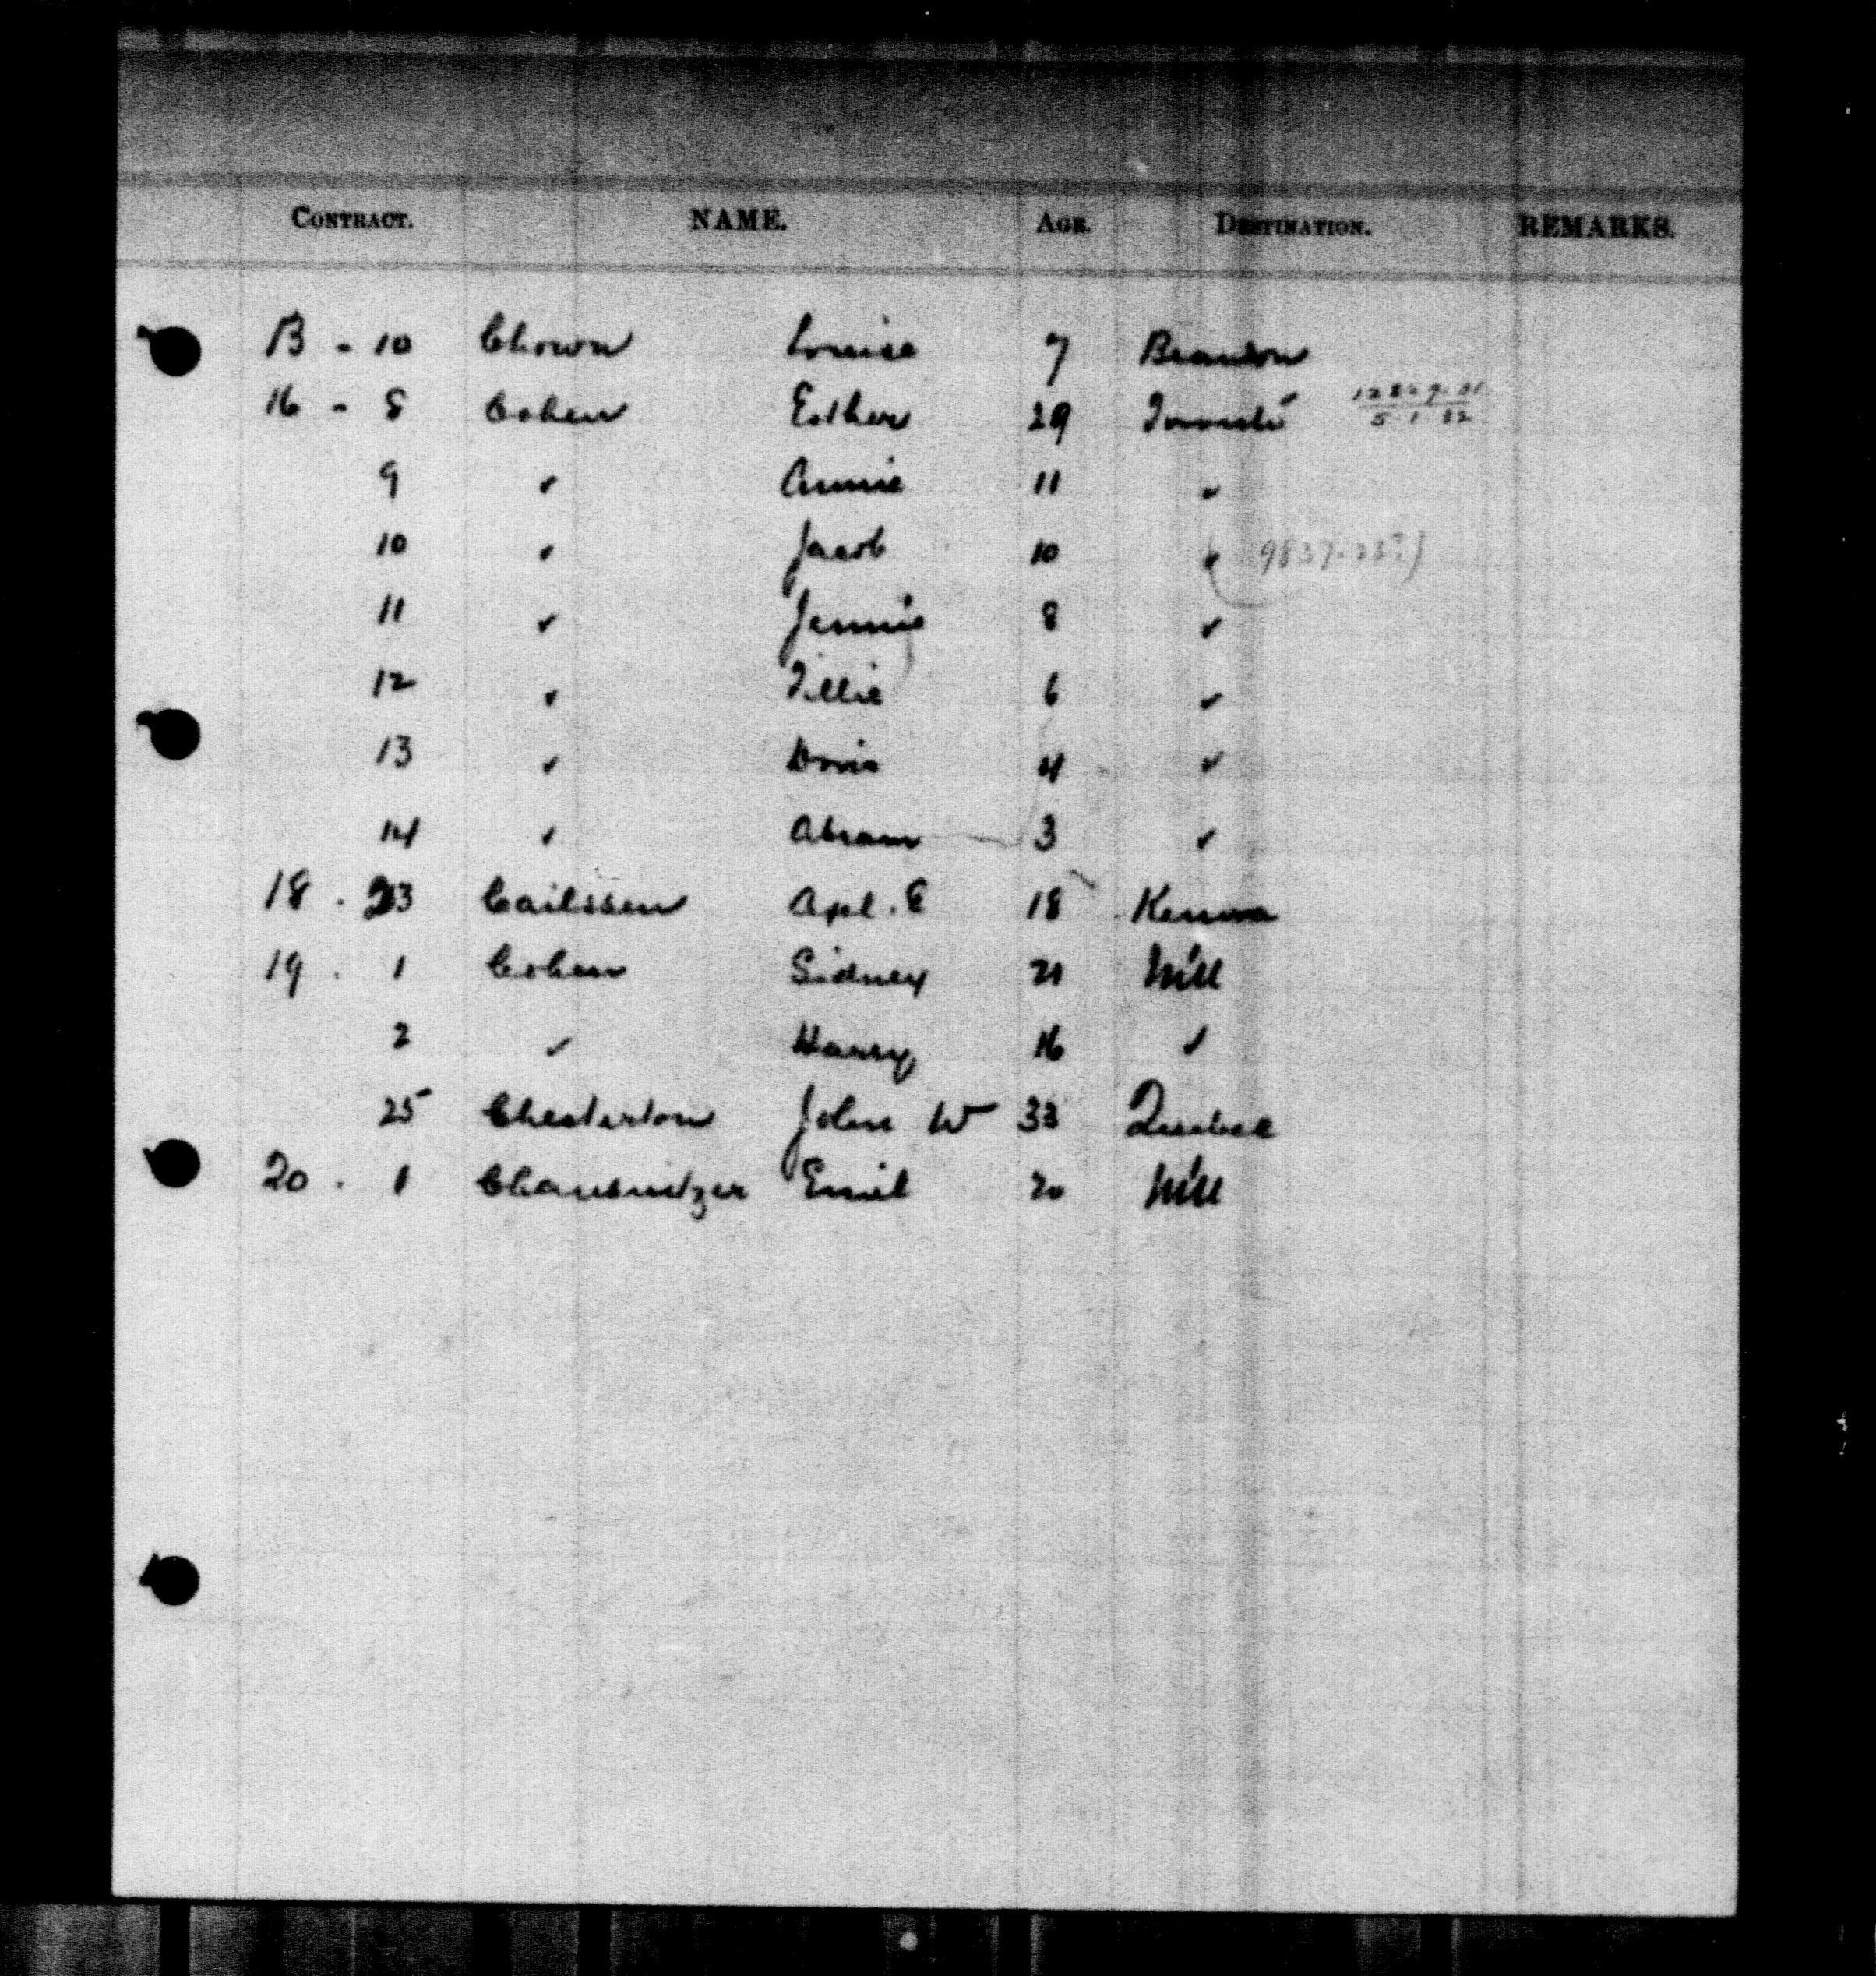 CONTRACT. NAME. AGE. DESTINATION. REMARKS.
B - 10 Chown Louise 7 Brandon
16 - 8 Cohen Esther 29 Toronto
9 " Annie 11 "
10 " Jacob 10 "
11 " Jennie 8 "
12 " Tillie 6 "
13 " Doris 4 "
14 " Abram 3 "
18 . 23 Carlssen Axel . E 18 Kenora
19 . 1 Cohen Sidney 21
2 " Harry 16 "
25 Chesterton John W 33 Quebec
20 . 1 Emil 20